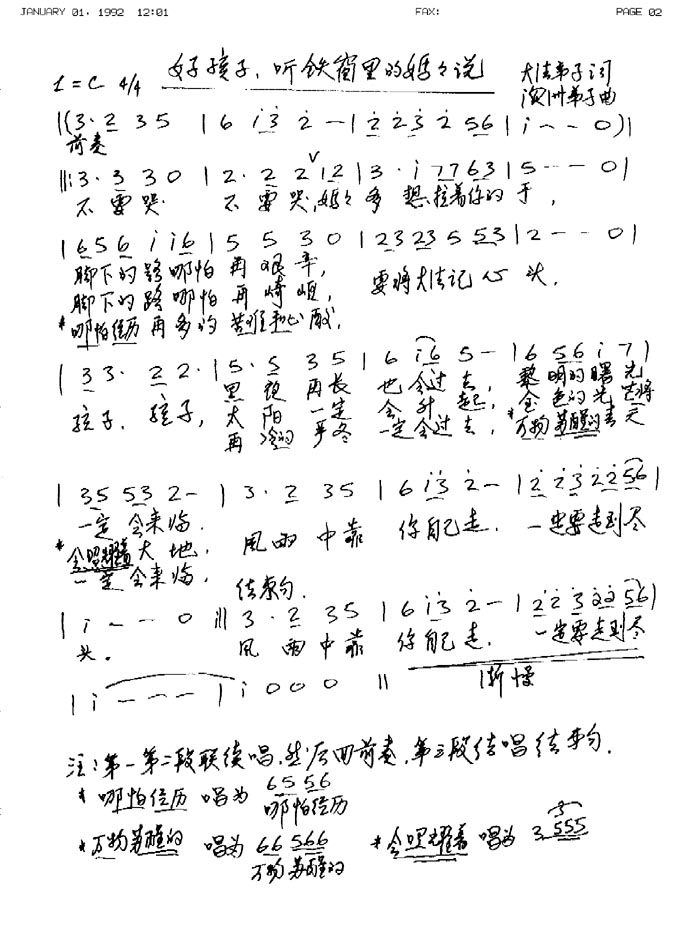 JANUARY 01, 1992 12:01 FAX: PAGE 02
好孩子,听铁窗里的妈々说
1=C 4/4
大法弟子词
澳洲弟子曲
|(3· 2 3 5 | 6 i3 2 - | 2 23 2 56 | i - - 0)|
前奏
‖:3· 3 3 0 | 2· 2 2 12 | 3· i 77 63 | 5 - - - 0|
不要哭 不要哭,妈々多想拉着你的手,
|65 6 i i6 | 5 5 3 0 | 23 23 5 53 | 2 - - 0|
脚下的路哪怕再艰辛, 要将大法记心头.
脚下的路哪怕再崎岖,
*哪怕经历再多的苦难和心酸,
|33· 22· | 5· 5 35 | 6 i6 5 - | 6 56 i 7|
孩子.孩子, 黑夜再长 也会过去, 黎明的曙光
太阳一定 会升起, 金色的光芒将
再冷的严冬 一定会过去, *万物苏醒的春天
|35 53 2 - | 3· 2 35 | 6 i3 2 - | 2 23 22 56|
一定会来临. 風雨中靠 你自己走. 一定要走到尽
*会照耀着大地,
一定会来临, 结束句.
|i - - 0 :‖ 3· 2 35 | 6 i3 2 - | 22 3 22 56|
头. 風雨中靠 你自己走. 一定要走到尽
|i - - - | i 0 0 0 ‖ 渐慢
注:第一第二段联续唱,然后回前奏,第三段结唱结束句.
* 哪怕经历 唱为 65 56
哪怕经历
*万物苏醒的 唱为 66 566 *会照耀着 唱为 3 555
万物苏醒的 3